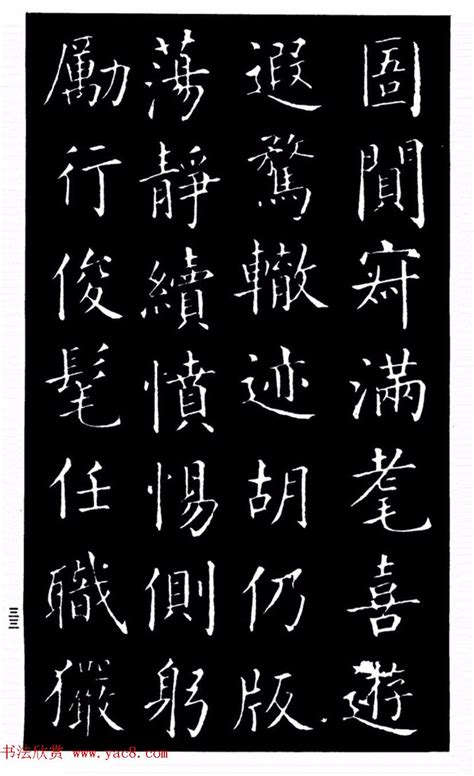 圄闃寂滿耄喜遊
遐驚轍迹胡仍版
蕩靜續憤惕側躬
勵行俊髦任職玁
三三
书法欣赏 www.yac8.com